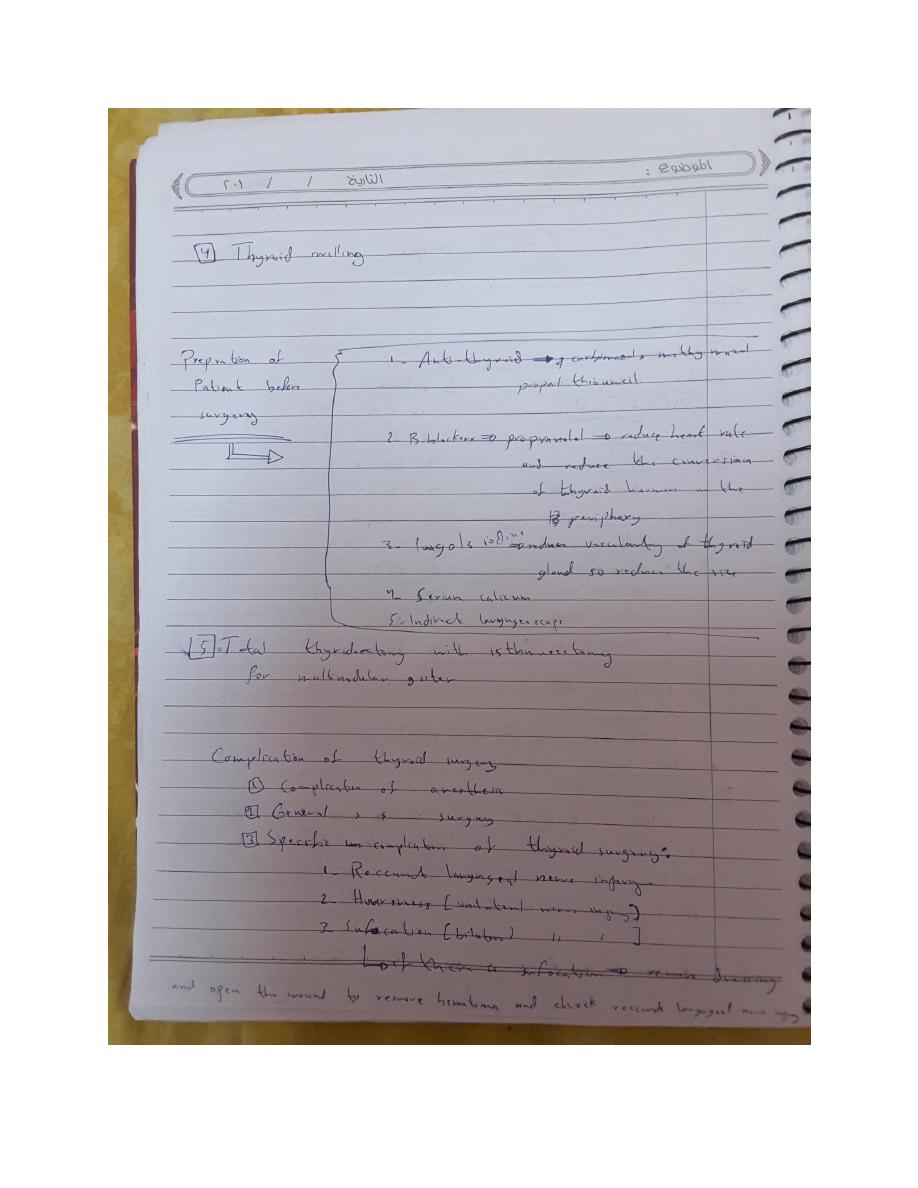 الموضوع :
التاريخ / / ٢٠١
4 Thyroid swelling
Prepration of
Patient before
surgery
1- Anti-thyroid
propyl thiouracil
2- B-blockers ⇒ propranolol → reduce heart rate
and reduce the conversion
of thyroid in the
periphery
3- iodine ⇒ reduce vascularity of thyroid
gland so reduce the size
4- Serum calicum
5- Indirect laryngeoscope
5. Total thyridectomy with isthmusectomy
for multinodular goiter
Complication of thyroid surgery
1 Complication of anesthesia
2 General surgery
3 Specific complication of thyroid surgery:
1- Reccurent laryngeal nerve injury
2- Hoarsness [unilateral nerve injury]
3- Sufocation [bilateral) " ]
there is sufocation → remove dressing
and open the wound to remove hematoma and check reccurent laryngeal nerve injury